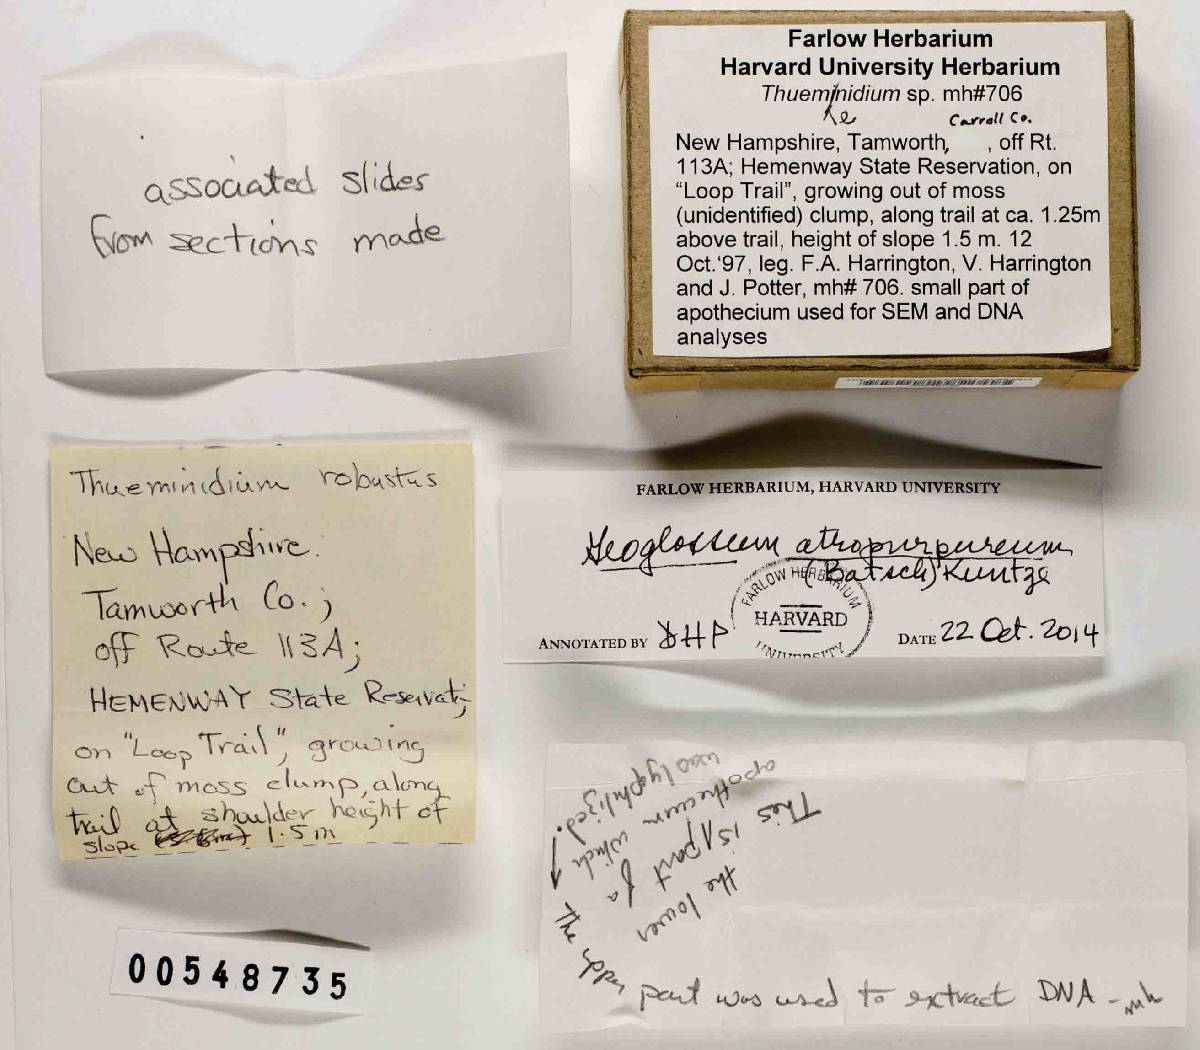 associated slides
from sections made
Farlow Herbarium
Harvard University Herbarium
Thueminidium sp. mh#706
e
Carroll Co.
New Hampshire, Tamworth, , off Rt.
113A; Hemenway State Reservation, on
“Loop Trail”, growing out of moss
(unidentified) clump, along trail at ca. 1.25m
above trail, height of slope 1.5 m. 12
Oct.‘97, leg. F.A. Harrington, V. Harrington
and J. Potter, mh# 706. small part of
apothecium used for SEM and DNA
analyses
Thueminidium robustus
New Hampshire.
Tamworth Co.;
off Route 113A;
HEMENWAY State Reservati;
on "Loop Trail", growing
out of moss clump, along
trail at shoulder height of
slope 1.5 m
FARLOW HERBARIUM, HARVARD UNIVERSITY
Geoglossum atropurpureum
(Batsch) Kuntze
FARLOW HERBARIUM
HARVARD
UNIVERSITY
ANNOTATED BY DHP
DATE 22 Oct. 2014
the lower
This is part of a
apothecium which
was lyophilized.
The upper part was used to extract DNA - mh
00548735